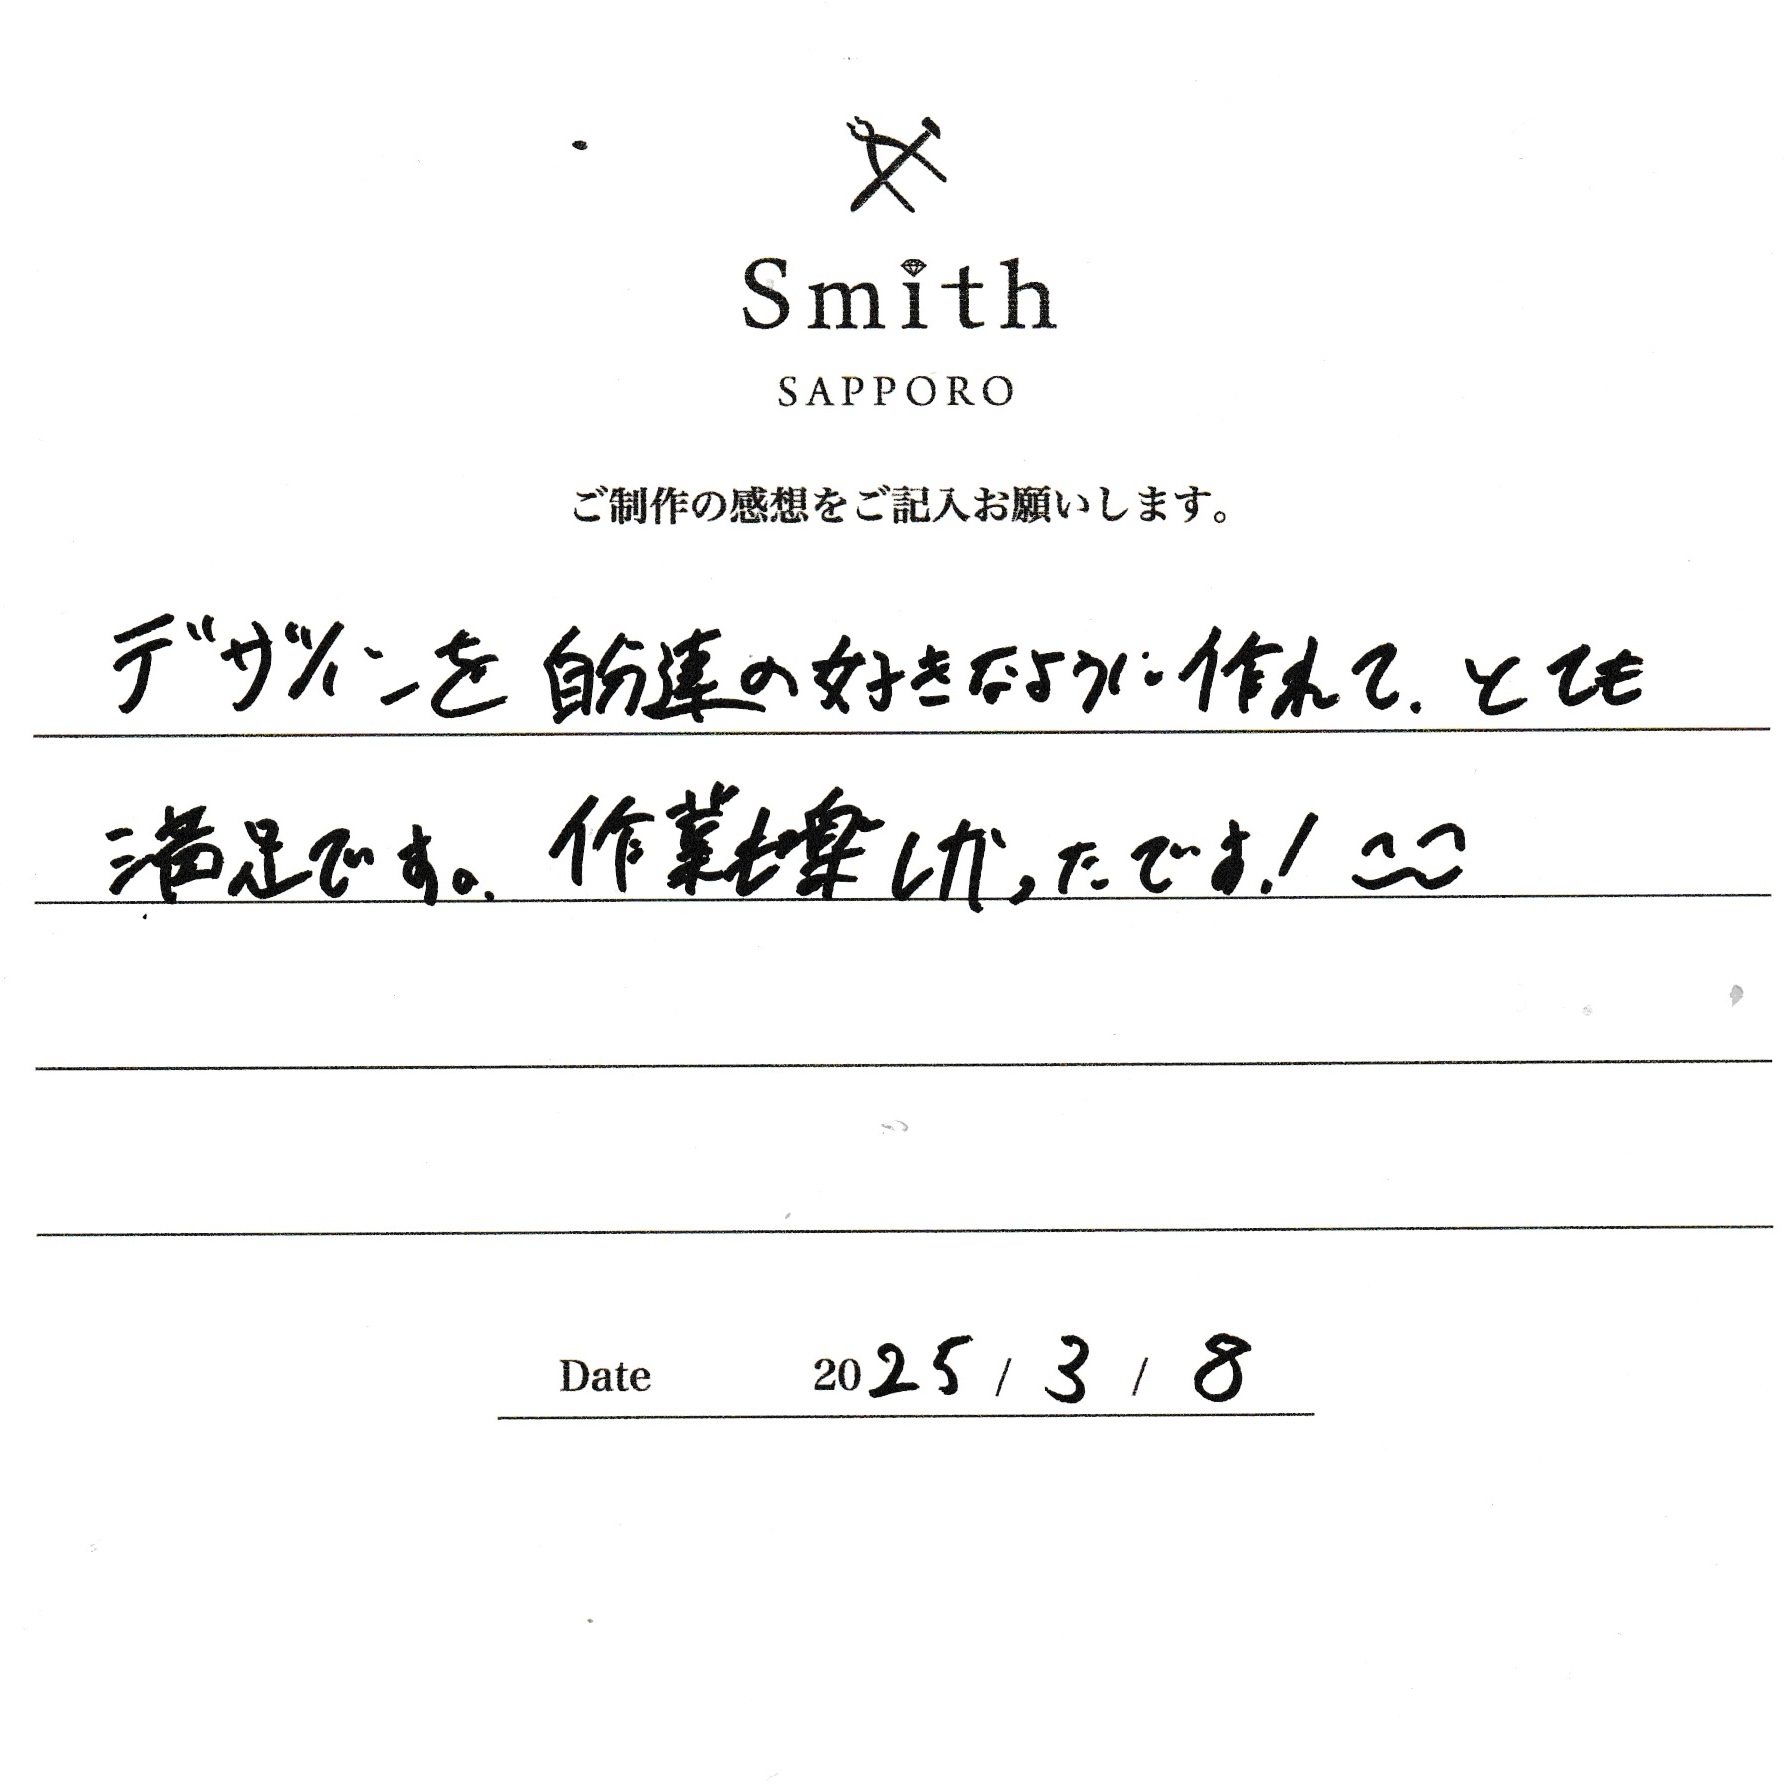 Smith
SAPPORO
ご制作の感想をご記入お願いします。
デザインを自分達の好きなように作れて、とても
満足です。作業も楽しかったです！
Date 2025 / 3 / 8